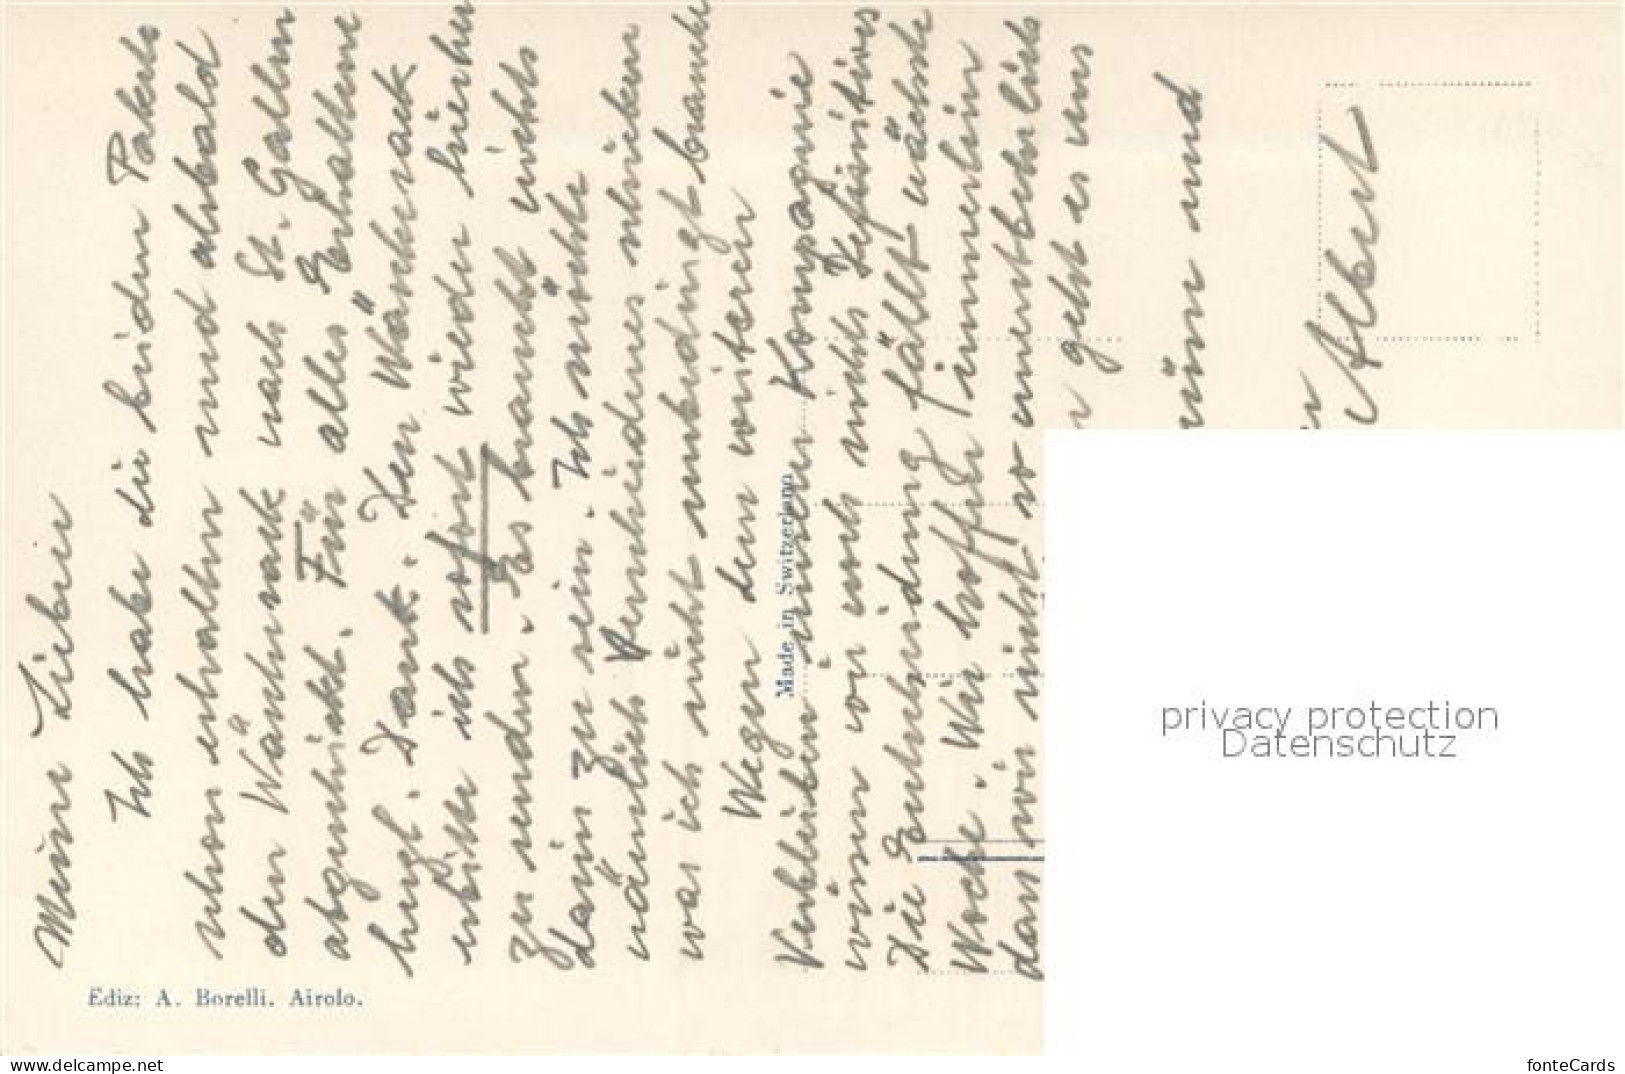 Meine Lieben
Ich habe die beiden Pakets
schon erhalten und alsbald
den Wäschesack nach St. Gallen
abgeschickt. Für alles Erhaltene
herzl. Dank. Den Wäschesack
erbitte ich sofort wieder hierher
zu senden. Es braucht nichts
darin zu sein. Ich möchte
nämlich Verschiedenes schicken
was ich nicht unbedingt brauche
Wegen dem weiteren
Verbleiben unserer Kompagnie
wissen wir noch nichts Definitives
Die Entscheidung fällt nächste
Woche. Wir hoffen immerhin
dass wir nicht so unentbehrlich
geht es uns
und
Albert
Made in Switzerland
Ediz: A. Borelli. Airolo.
privacy protection
Datenschutz
www.delcampe.net
fonteCards